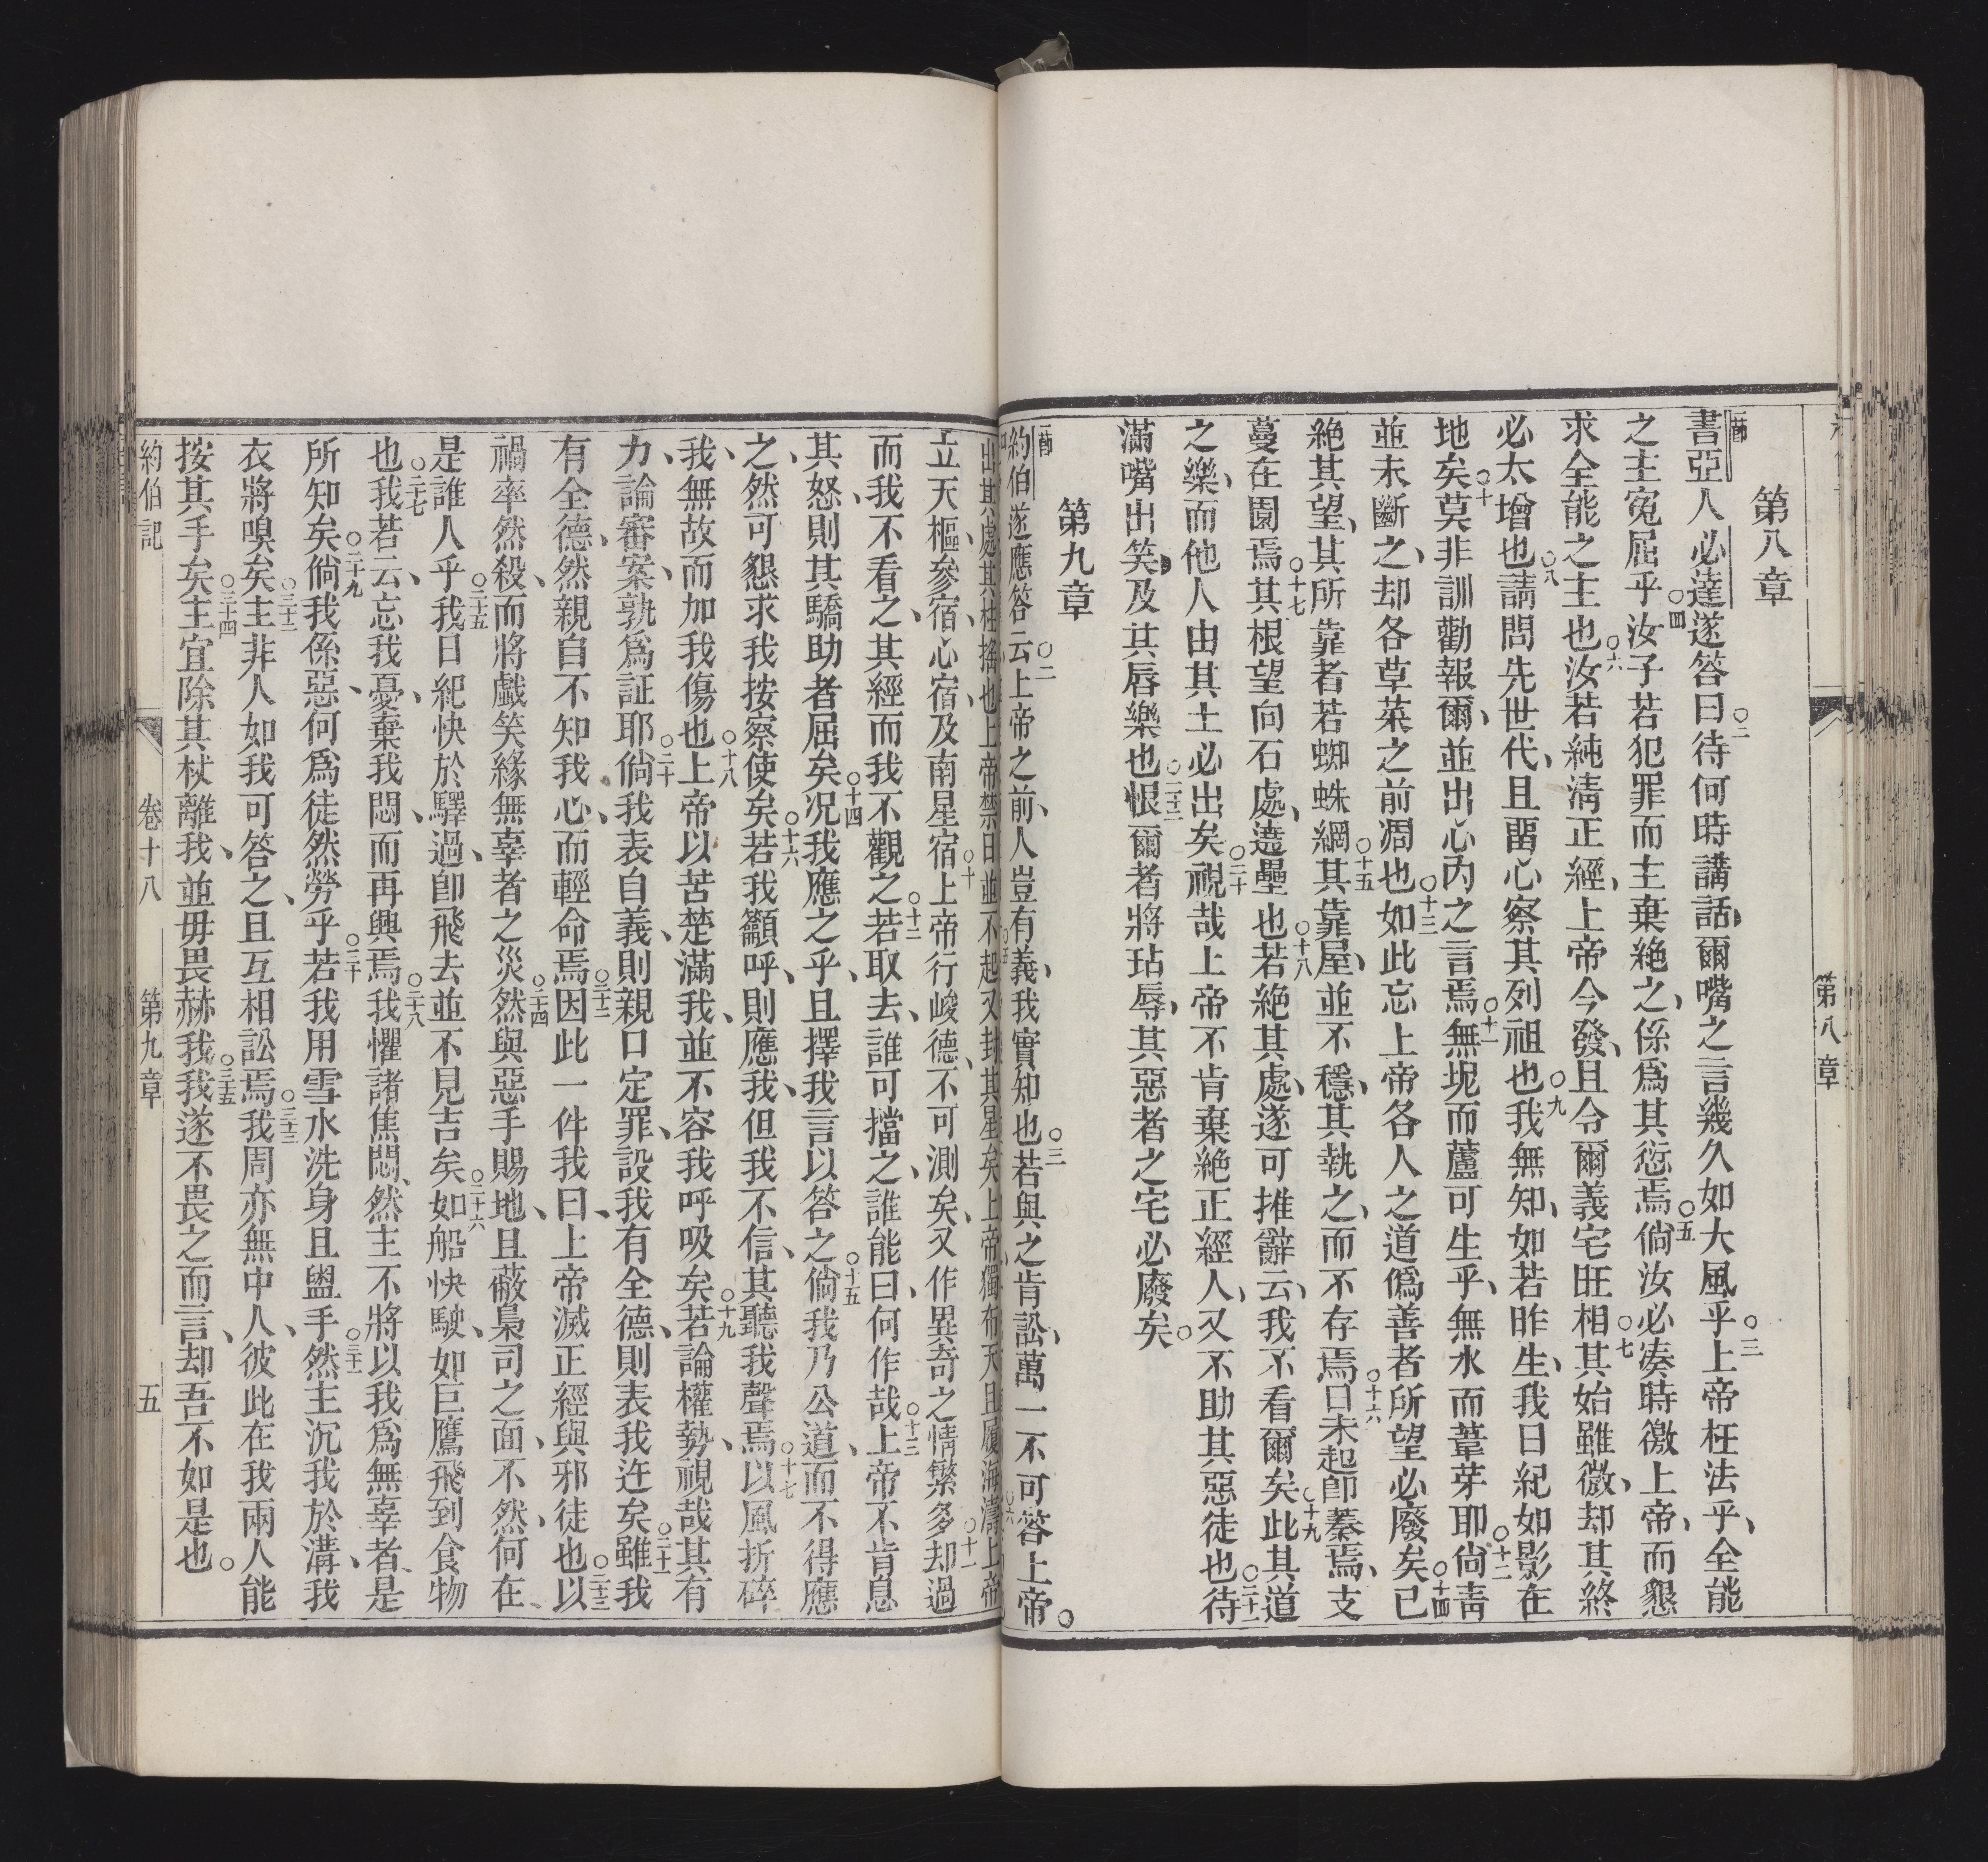 第八章
第八章
一節書亞人必達遂答曰○二待何時講話爾嘴之言幾久如大風乎○三上帝枉法乎全能
之主寃屈乎○四汝子若犯罪而主棄絶之係爲其愆焉○五倘汝必湊時徼上帝而懇
求全能之主也○六汝若純淸正經上帝今發且令爾義宅旺相○七其始雖微却其終
必太增也○八請問先世代且畱心察其列祖也○九我無知如若昨生我日紀如影在
地矣○十莫非訓勸報爾並出心內之言焉○十一無坭而蘆可生乎無水而葦芽耶○十二尙靑
並未斷之却各草菜之前凋也○十三如此忘上帝各人之道僞善者所望必廢矣○十四已
絶其望其所靠者若蜘蛛網○十五其靠屋並不穩其執之而不存焉○十六日未起卽蓁焉支
蔓在園焉○十七其根望向石處遶壘也○十八若絶其處遂可推辭云我不看爾矣○十九此其道
之樂而他人由其土必出矣○二十視哉上帝不肯棄絶正經人又不助其惡徒也○二十一待
滿嘴出笑及其唇樂也○二十二恨爾者將玷辱其惡者之宅必廢矣○
第九章
一節約伯遂應答○二云上帝之前人豈有義我實知也○三若與之肯訟萬一不可答上帝○
出其處其柱搖也上帝禁日並不起又封其星矣上帝獨布天且履海濤上帝
立天樞參宿心宿及南星宿○十上帝行峻德不可測矣又作異奇之情繁多○十一却過
而我不看之其經而我不觀之○十二若取去誰可擋之誰能曰何作哉○十三上帝不肯息
其怒則其驕助者屈矣○十四况我應之乎且擇我言以答之○十五倘我乃公道而不得應
之然可懇求我按察使矣○十六若我籲呼則應我但我不信其聽我聲焉○十七以風折碎
我無故而加我傷也○十八上帝以苦楚滿我並不容我呼吸矣○十九若論權勢視哉其有
力論審案孰爲証耶○二十倘我表自義則親口定罪設我有全德則表我迕矣○二十一雖我
有全德然親自不知我心而輕命焉○二十二因此一件我曰上帝滅正經與邪徒也○二十三以
禍率然殺而將戲笑緣無辜者之災○二十四然與惡手賜地且蔽臬司之面不然何在
是誰人乎○二十五我日紀快於驛過卽飛去並不見吉矣○二十六如船快駛如巨鷹飛到食物
也○二十七我若云忘我憂棄我悶而再興焉○二十八我懼諸焦悶然主不將以我爲無辜者是
所知矣○二十九倘我係惡何爲徒然勞乎○三十若我用雪水洗身且盥手○三十一然主沉我於溝我
衣將嗅矣○三十二主非人如我可答之且互相訟焉○三十三我周亦無中人彼此在我兩人能
按其手矣○三十四主宜除其杖離我並毋畏赫我○三十五我遂不畏之而言却吾不如是也○
約伯記 卷十八 第九章 五